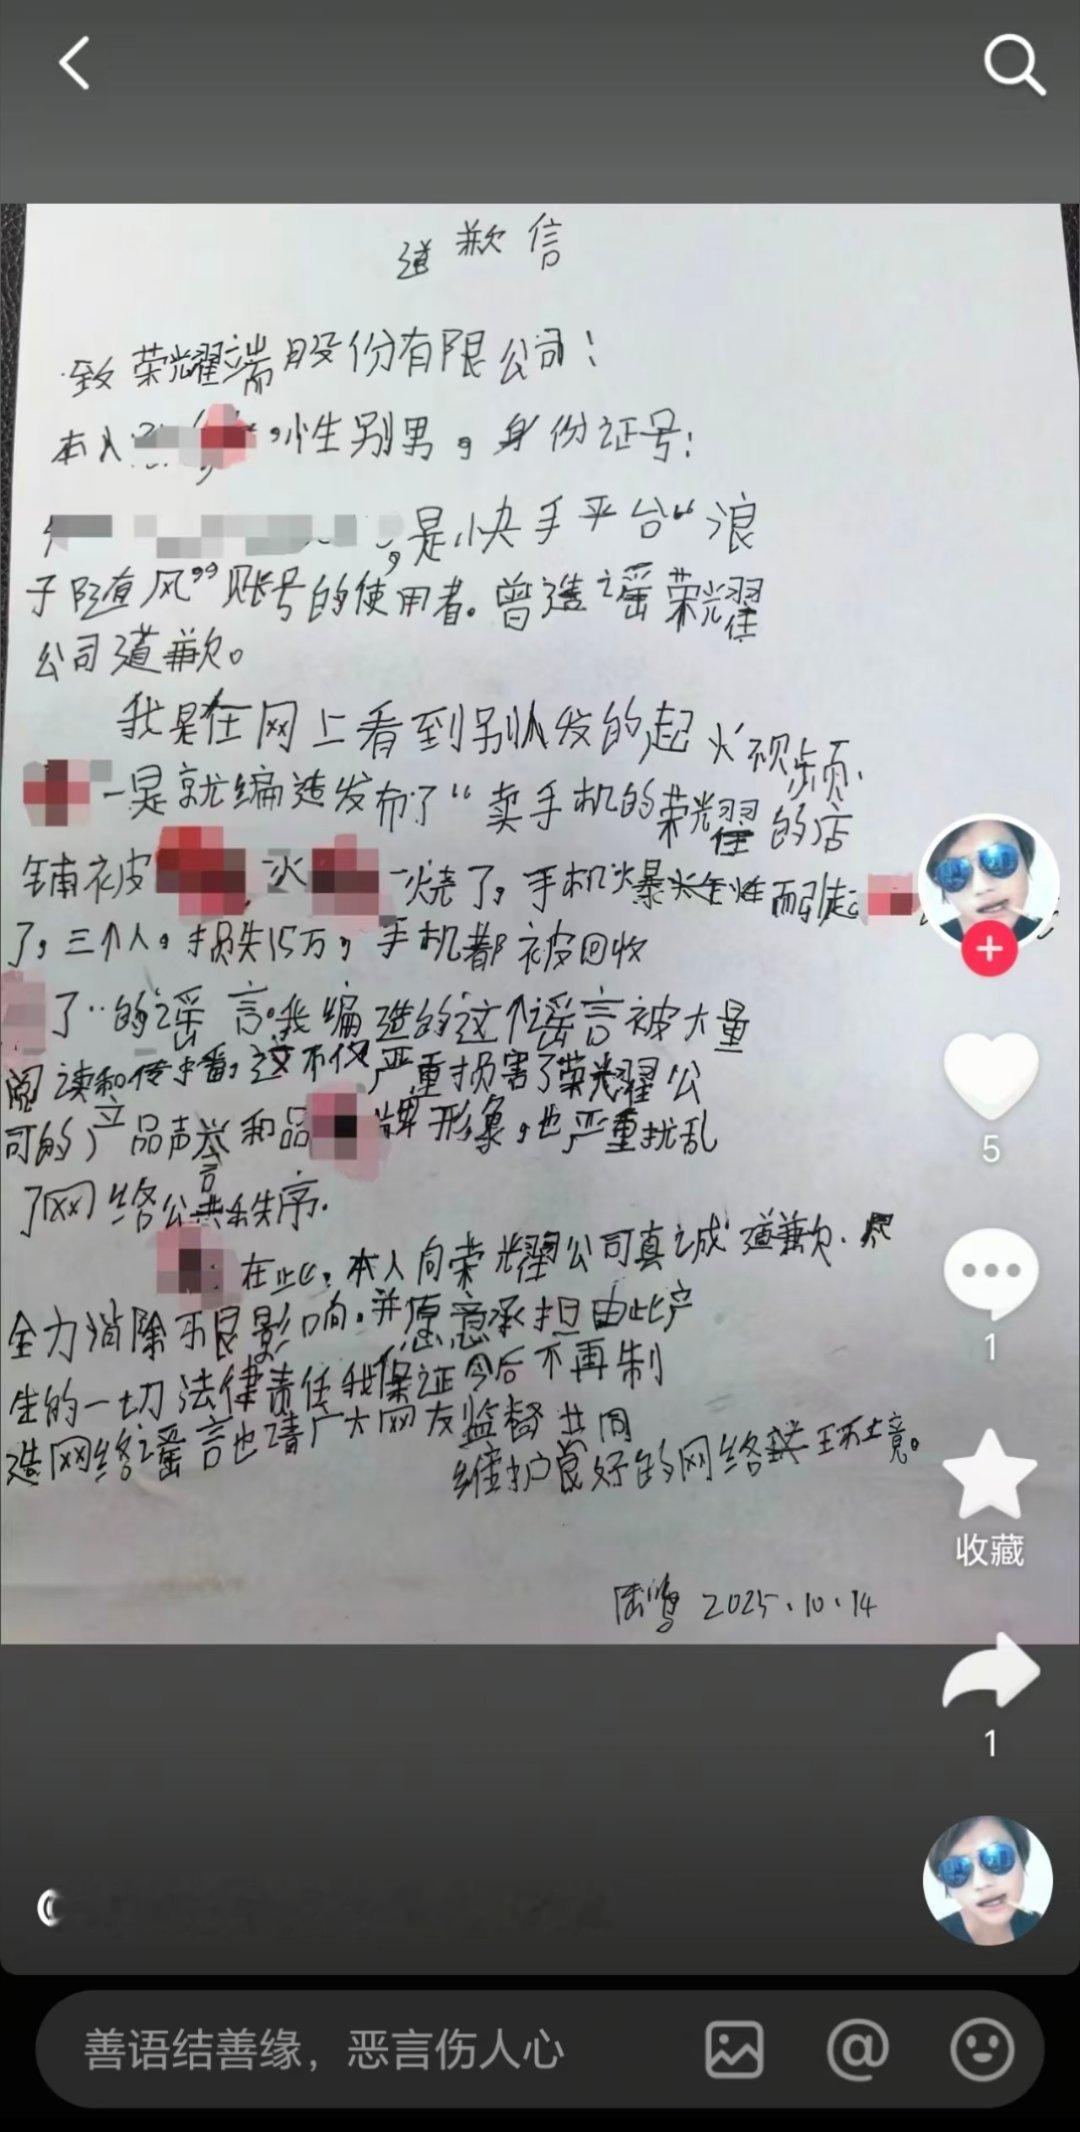 道歉信
致荣耀端股份有限公司！
本人，性别男，身份证号：
，是快手平台“浪
子随风”账号的使用者。曾造谣荣耀
公司道歉。
我是在网上看到别人发的起火视频，
一是就编造发布了“卖手机的荣耀的店
铺被火烧了，手机爆炸而引起
了，三个人，损失15万，手机都被回收
了”的谣言。我编造的这个谣言被大量
阅读和传播，这不仅严重损害了荣耀公
司的产品声誉和品牌形象，也严重扰乱
了网络公共秩序。
在此，本人向荣耀公司真诚道歉。
全力消除不良影响。并愿意承担由此产
生的一切法律责任我保证今后不再制
造网络谣言也请广大网友监督共同
维护良好的网络环境。
2025.10.14
5
1
收藏
1
善语结善缘，恶言伤人心